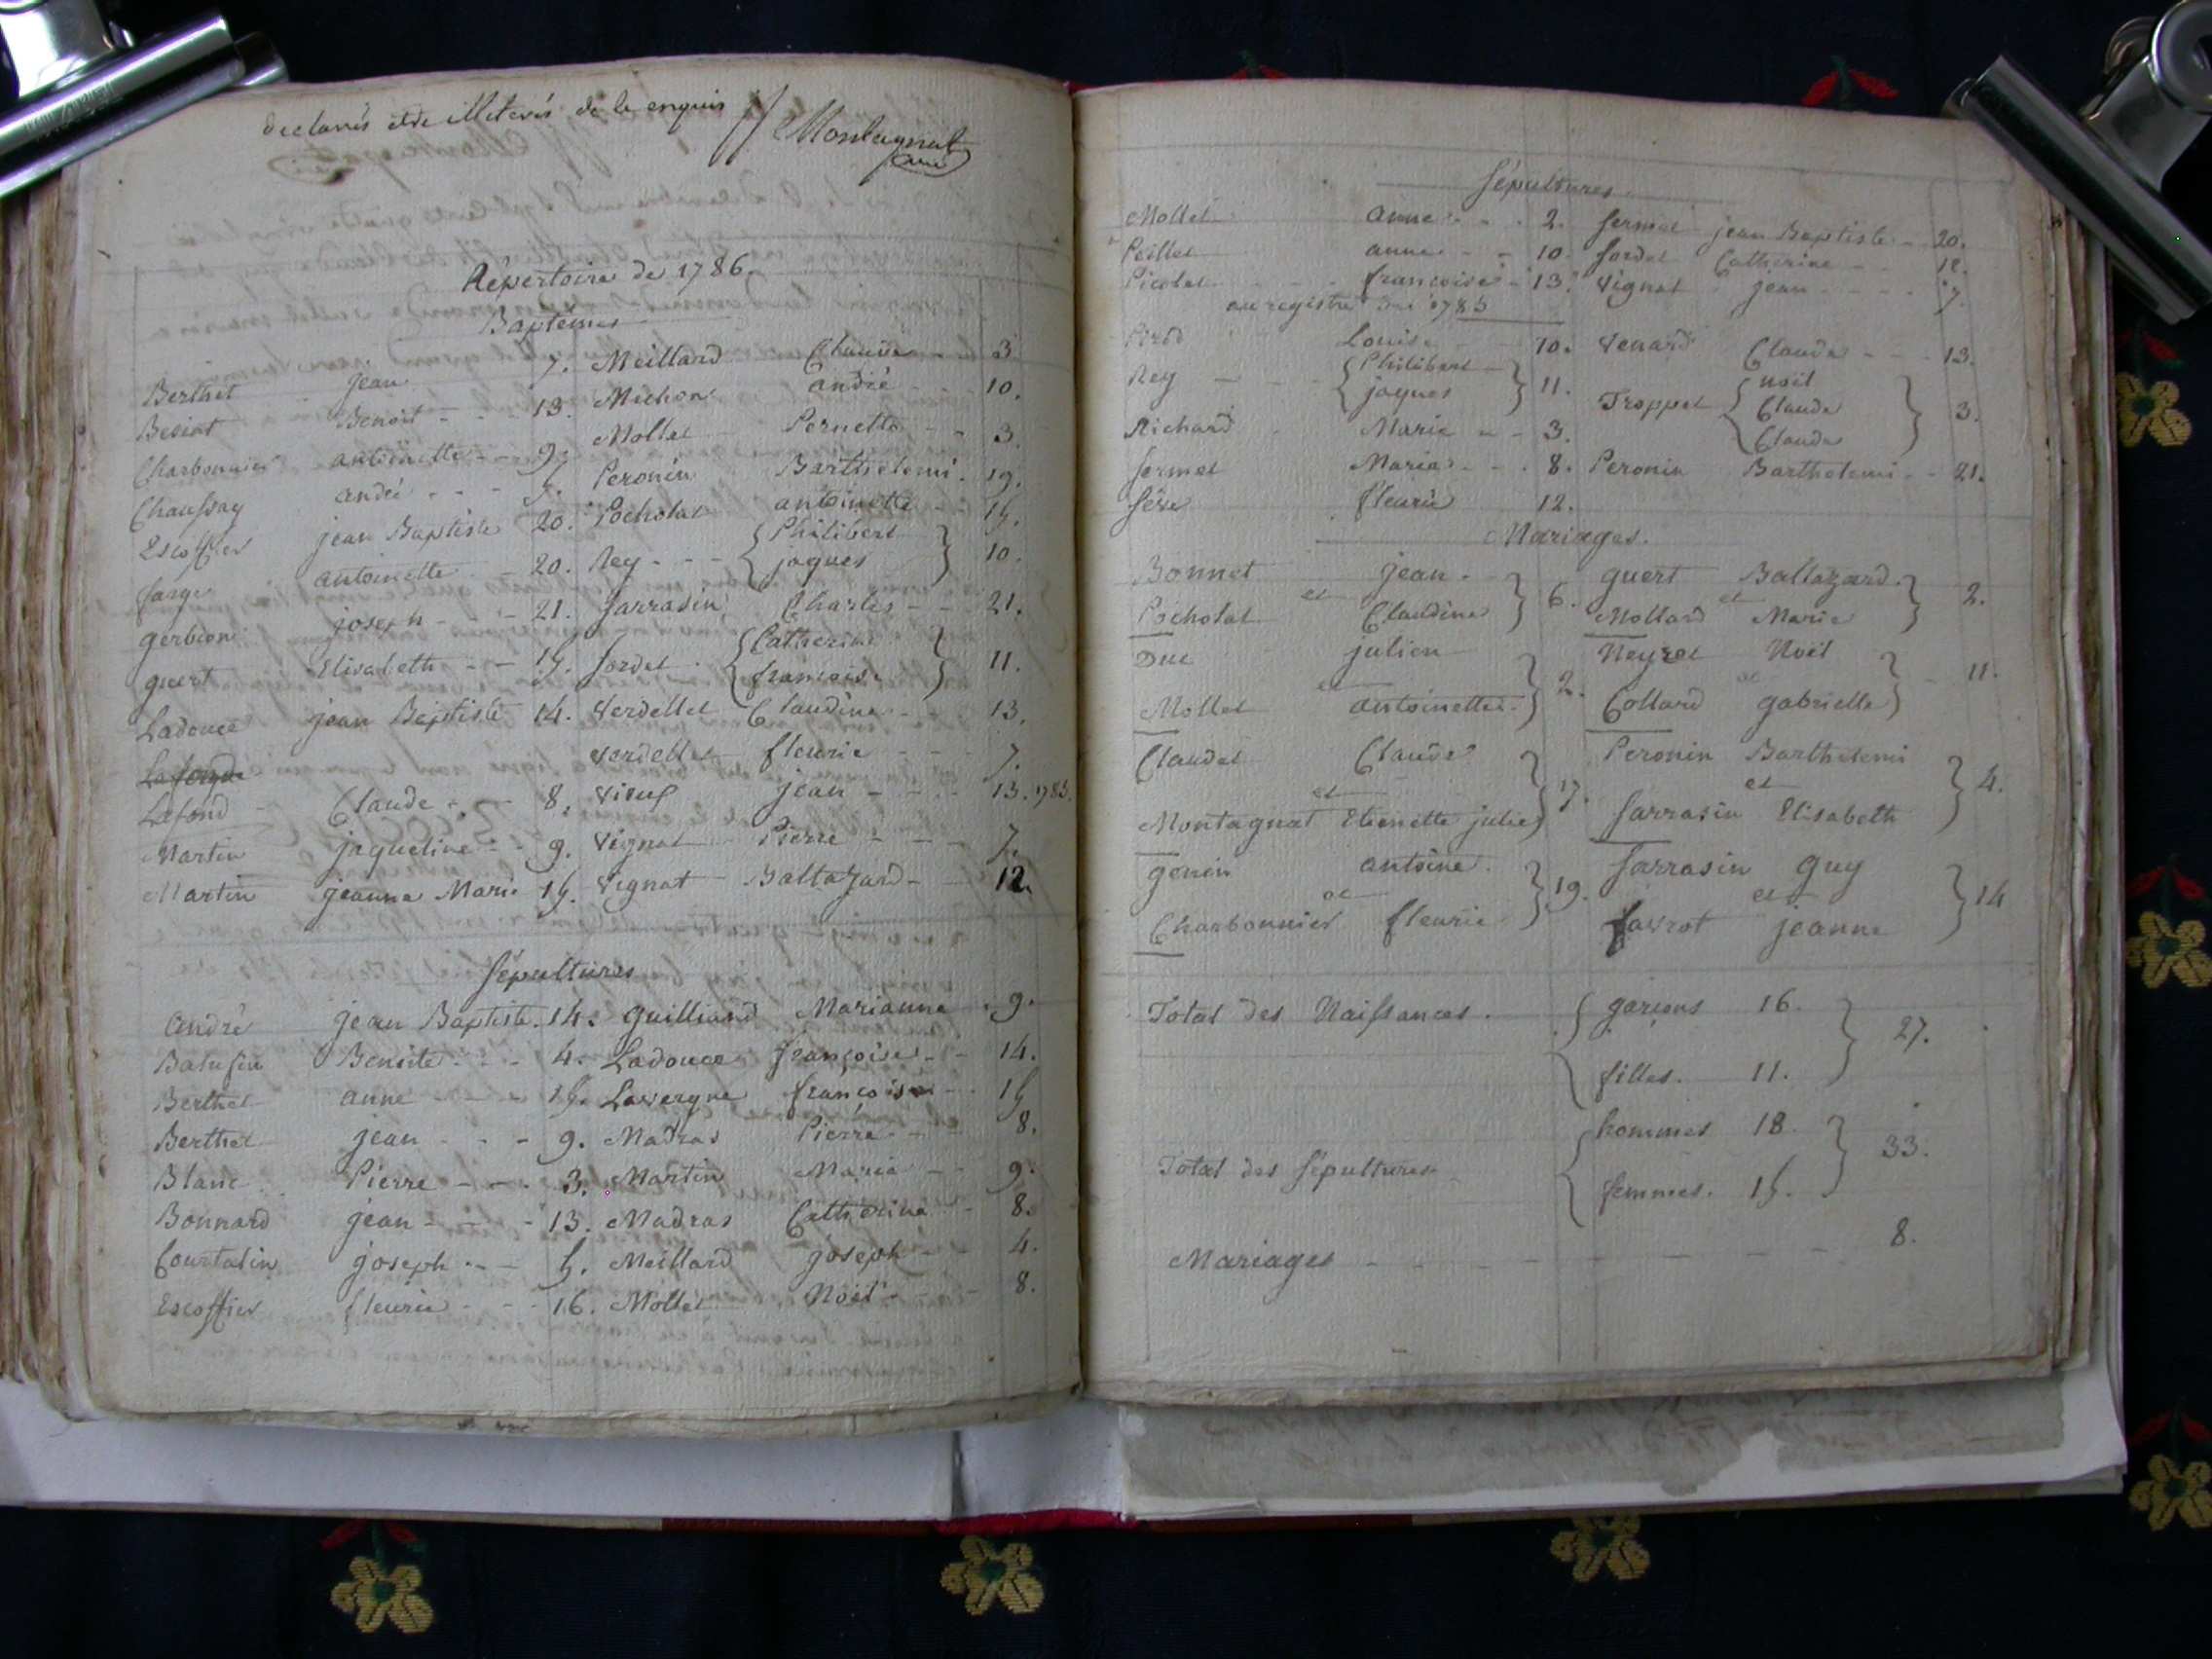 declarés et de illeterés de le enquis // Montagnat
curé
Répertoire de 1786.
Baptemes
Berthet jean 7. Meillard Claude 3
Besiat Benoit 13. Michon andré 10.
Charbonnier antoinette 9. Mollet Pernette 3.
Chaussay andré 5. Peronin Barthelemi. 19.
Escoffier jean Baptiste 20. Pocholat antoinette 15.
farge antoinette 20. Rey { Philibert jaques } 10.
gerbion joseph 21. Sarrasin Charles 21.
guert Elisabeth 15. Sordet { Catherine françoise } 11.
Ladouce jean Baptiste 14. Verdellet Claudine 13.
Verdellet fleurie 7.
Lafond Claude 8. Vieux jean 13. 1785.
Martin jaqueline 9. Vignat Pierre 7.
Martin jeanne Marie 15. Vignat Baltazard 12.
Sépultures
André jean Baptiste. 14. guilliand Marianne 9.
Benoite 4. Ladouce françoise 14.
Berthet anne 15. Lavergne françoise 15
Berthet jean 9. Madras Pierre 8.
Blanc Pierre 3. Martin Marie 9.
Bonnard jean 13. Madras Catherine 8.
Courtasin joseph 5. Meillard joseph 4.
Escoffier fleurie 16. Mollet Noël 8.
Sépultures
Mollet anne 2. Sermet jean Baptiste 20.
Peillet anne 10. Sordet Catherine 12.
Picolet françoise 13. Vignat jean 7.
au registre de 1785
Louise 10. Venard Claude 13.
Rey { Philibert jaques } 11. Troppet { noël Claude Claude } 3.
Richard Marie 3.
Sermet Marie 8. Peronin Barthelemi 21.
Sève fleurie 12.
Mariages.
Bonnet jean guert Baltazard
et } 6. et } 2.
Pocholat Claudine Mollard Marie
Duc julien Neyret Noël
et } 2. et } 11.
Mollet antoinette Collard gabrielle
Claudet Claude Peronin Barthelemi
et } 17. et } 4.
Montagnat Etienette julie Sarrasin Elisabeth
genin antoine Sarrasin guy
et } 19. et } 14
Charbonnier fleurie favrot jeanne
Total des Naissances. { garçons 16. filles. 11. } 27.
Total des Sépultures { hommes 18. femmes. 15. } 33.
Mariages 8.